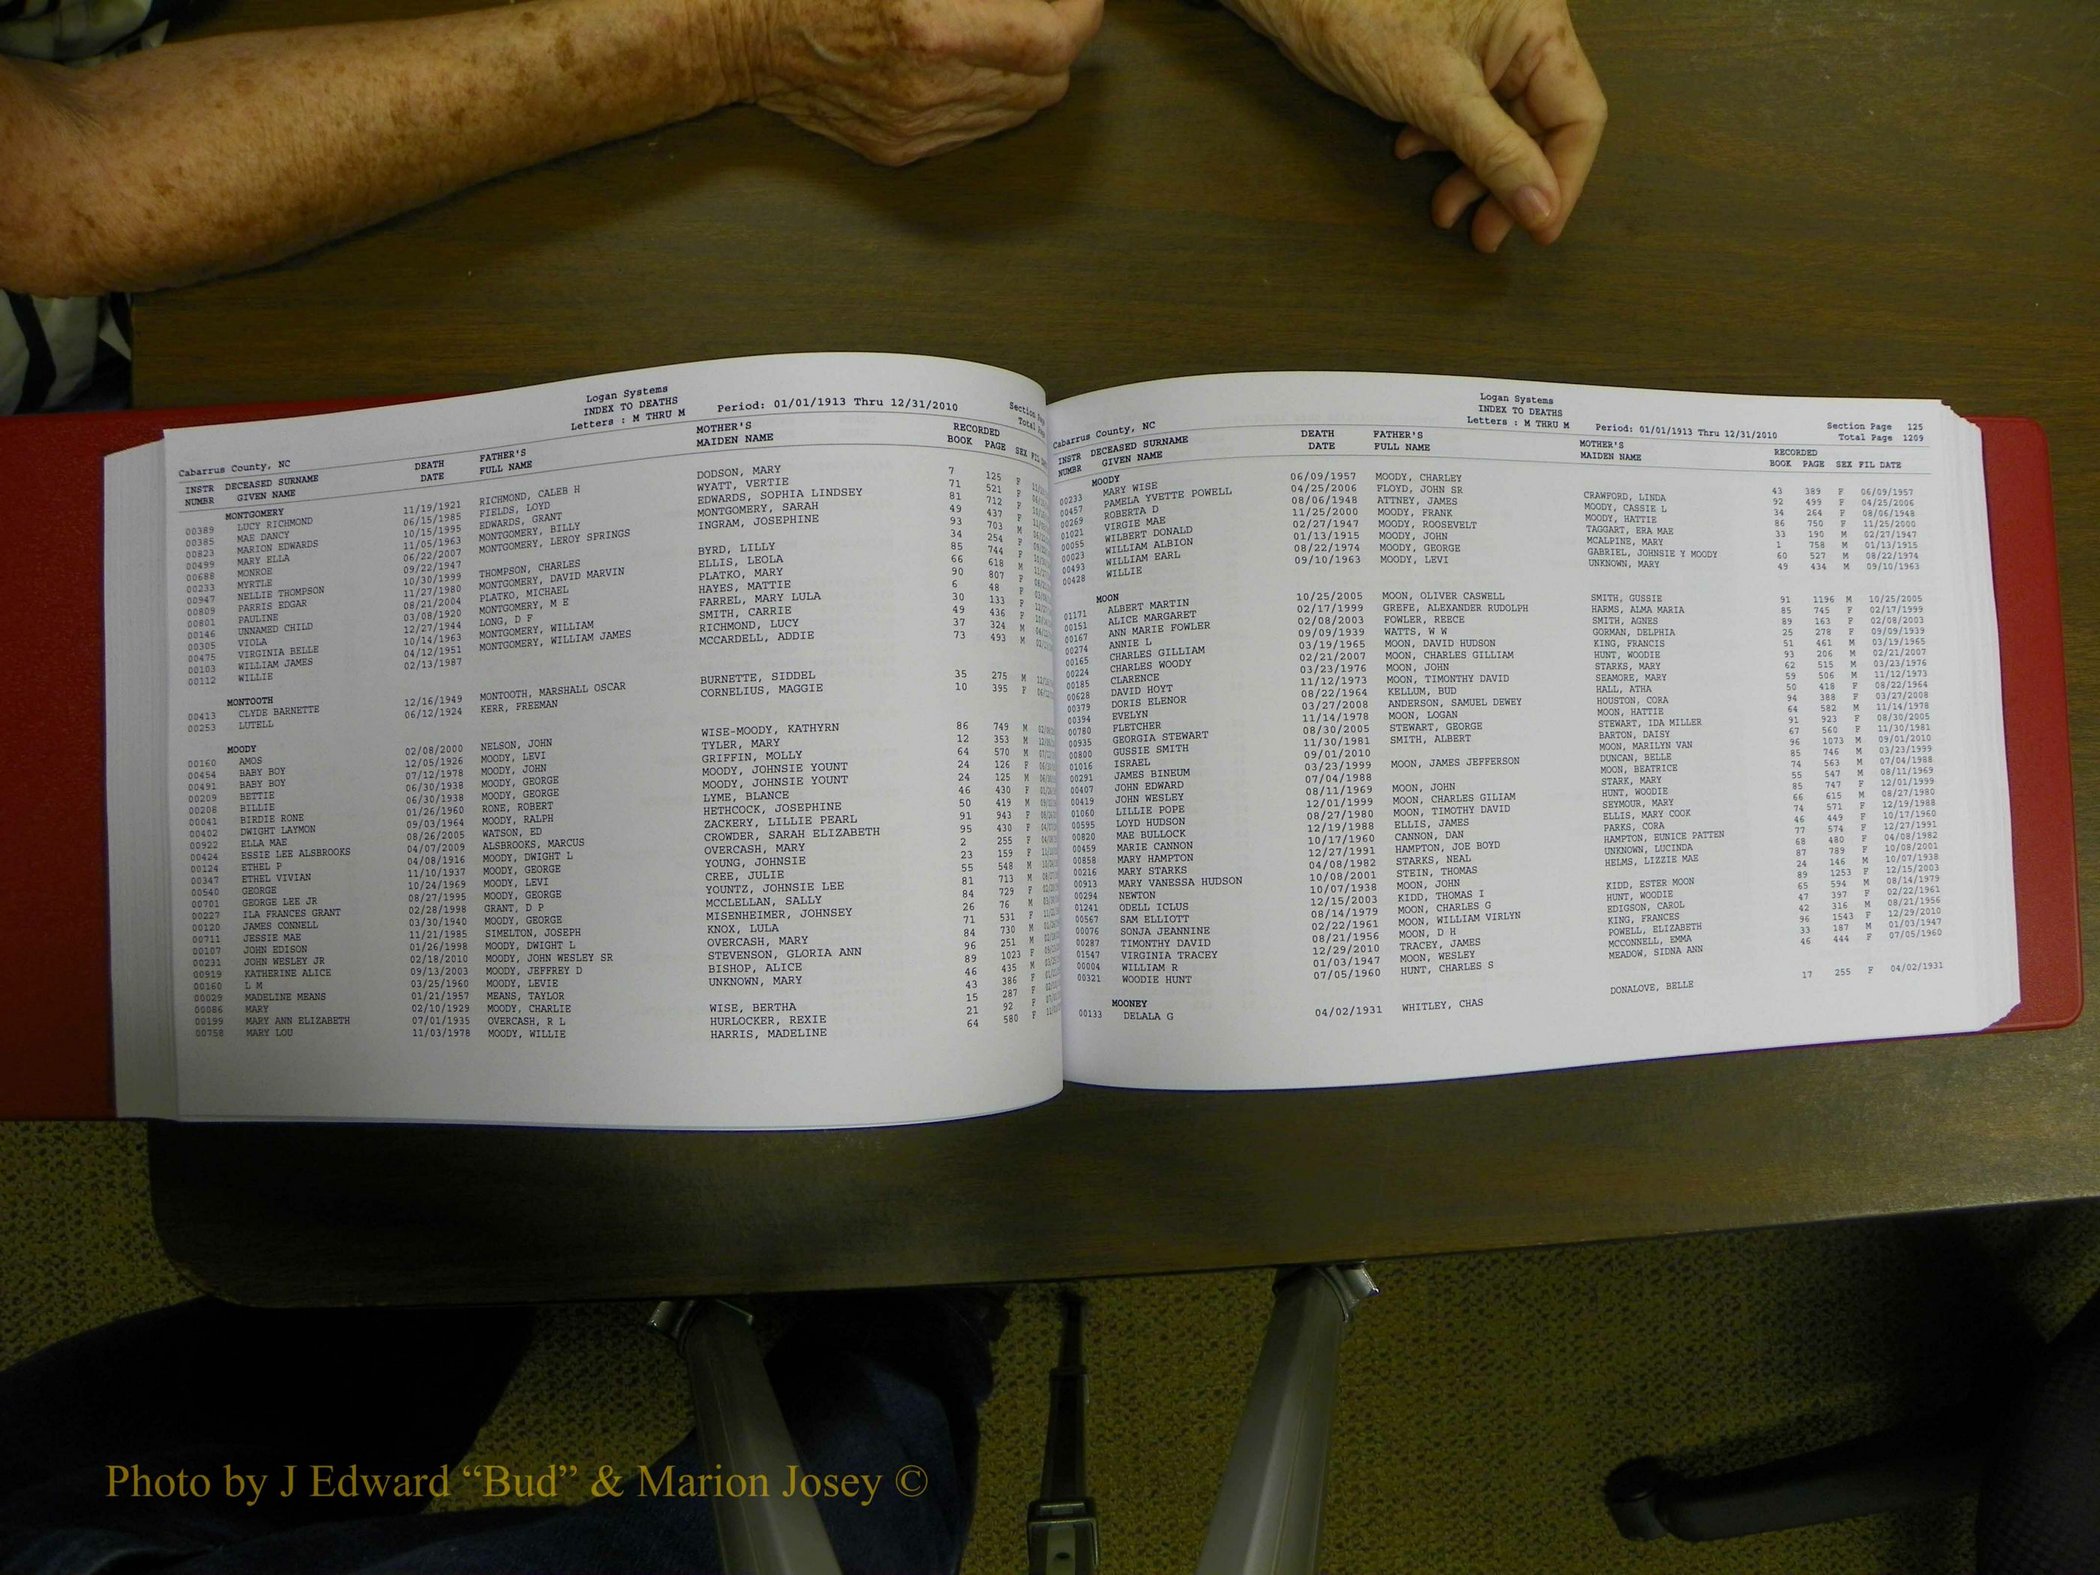 Logan Systems
INDEX TO DEATHS
Letters : M THRU M Period: 01/01/1913 Thru 12/31/2010 Section
Cabarrus County, NC Total Page
INSTR DECEASED SURNAME DEATH FATHER'S MOTHER'S RECORDED
NUMBR GIVEN NAME DATE FULL NAME MAIDEN NAME BOOK PAGE SEX FIL
MONTGOMERY
00389 LUCY RICHMOND 11/19/1921 RICHMOND, CALEB H DODSON, MARY 7 125 F
00385 MAE DANCY 06/15/1985 FIELDS, LOYD WYATT, VERTIE 71 521 F
00823 MARION EDWARDS 10/15/1995 EDWARDS, GRANT EDWARDS, SOPHIA LINDSEY 81 712 F
00499 MARY ELLA 11/05/1963 MONTGOMERY, BILLY MONTGOMERY, SARAH 49 437 F
00688 MONROE 06/22/2007 MONTGOMERY, LEROY SPRINGS INGRAM, JOSEPHINE 93 703 M
00233 MYRTLE 09/22/1947 34 254 F
00947 NELLIE THOMPSON 10/30/1999 THOMPSON, CHARLES BYRD, LILLY 85 744 F
00809 PARRIS EDGAR 11/27/1980 MONTGOMERY, DAVID MARVIN ELLIS, LEOLA 66 618 M
00801 PAULINE 08/21/2004 PLATKO, MICHAEL PLATKO, MARY 90 807 F
00146 UNNAMED CHILD 03/08/1920 MONTGOMERY, M E HAYES, MATTIE 6 48 F
00305 VIOLA 12/27/1944 LONG, D F FARREL, MARY LULA 30 133 F
00475 VIRGINIA BELLE 10/14/1963 MONTGOMERY, WILLIAM SMITH, CARRIE 49 436 F
00103 WILLIAM JAMES 04/12/1951 MONTGOMERY, WILLIAM JAMES RICHMOND, LUCY 37 324 M
00112 WILLIE 02/13/1987 MCCARDELL, ADDIE 73 493 M
MONTOOTH
00413 CLYDE BARNETTE 12/16/1949 MONTOOTH, MARSHALL OSCAR BURNETTE, SIDDEL 35 275 M
00253 LUTELL 06/12/1924 KERR, FREEMAN CORNELIUS, MAGGIE 10 395 F
MOODY
00160 AMOS 02/08/2000 NELSON, JOHN WISE-MOODY, KATHYRN 86 749 M
00454 BABY BOY 12/05/1926 MOODY, LEVI TYLER, MARY 12 353 M
00491 BABY BOY 07/12/1978 MOODY, JOHN GRIFFIN, MOLLY 64 570 M
00209 BETTIE 06/30/1938 MOODY, GEORGE MOODY, JOHNSIE YOUNT 24 126 F
00208 BILLIE 06/30/1938 MOODY, GEORGE MOODY, JOHNSIE YOUNT 24 125 M
00041 BIRDIE RONE 01/26/1960 RONE, ROBERT LYME, BLANCE 46 430 F
00402 DWIGHT LAYMON 09/03/1964 MOODY, RALPH HETHCOCK, JOSEPHINE 50 419 M
00922 ELLA MAE 08/26/2005 WATSON, ED ZACKERY, LILLIE PEARL 91 943 F
00424 ESSIE LEE ALSBROOKS 04/07/2009 ALSBROOKS, MARCUS CROWDER, SARAH ELIZABETH 95 430 F
00124 ETHEL P 04/08/1916 MOODY, DWIGHT L OVERCASH, MARY 2 255 F
00347 ETHEL VIVIAN 11/10/1937 MOODY, GEORGE YOUNG, JOHNSIE 23 159 F
00540 GEORGE 10/24/1969 MOODY, LEVI CREE, JULIE 55 548 M
00701 GEORGE LEE JR 08/27/1995 MOODY, GEORGE YOUNTZ, JOHNSIE LEE 81 713 M
00227 ILA FRANCES GRANT 02/28/1998 GRANT, D P MCCLELLAN, SALLY 84 729 F
00120 JAMES CONNELL 03/30/1940 MOODY, GEORGE MISENHEIMER, JOHNSEY 26 76 M
00711 JESSIE MAE 11/21/1985 SIMELTON, JOSEPH KNOX, LULA 71 531 F
00107 JOHN EDISON 01/26/1998 MOODY, DWIGHT L OVERCASH, MARY 84 730 M
00231 JOHN WESLEY JR 02/18/2010 MOODY, JOHN WESLEY SR STEVENSON, GLORIA ANN 96 251 M
00919 KATHERINE ALICE 09/13/2003 MOODY, JEFFREY D BISHOP, ALICE 89 1023 F
00160 L M 03/25/1960 MOODY, LEVIE UNKNOWN, MARY 46 435 M
00029 MADELINE MEANS 01/21/1957 MEANS, TAYLOR 43 386 F
00086 MARY 02/10/1929 MOODY, CHARLIE WISE, BERTHA 15 287 F
00199 MARY ANN ELIZABETH 07/01/1935 OVERCASH, R L HURLOCKER, REXIE 21 92 F
00758 MARY LOU 11/03/1978 MOODY, WILLIE HARRIS, MADELINE 64 580 F
Logan Systems
INDEX TO DEATHS
Letters : M THRU M Period: 01/01/1913 Thru 12/31/2010 Section Page 125
Cabarrus County, NC Total Page 1209
INSTR DECEASED SURNAME DEATH FATHER'S MOTHER'S RECORDED
NUMBR GIVEN NAME DATE FULL NAME MAIDEN NAME BOOK PAGE SEX FIL DATE
MOODY
00233 MARY WISE 06/09/1957 MOODY, CHARLEY 43 389 F 06/09/1957
00457 PAMELA YVETTE POWELL 04/25/2006 FLOYD, JOHN SR CRAWFORD, LINDA 92 499 F 04/25/2006
00269 ROBERTA D 08/06/1948 ATTNEY, JAMES MOODY, CASSIE L 34 264 F 08/06/1948
01021 VIRGIE MAE 11/25/2000 MOODY, FRANK MOODY, HATTIE 86 750 F 11/25/2000
00055 WILBERT DONALD 02/27/1947 MOODY, ROOSEVELT TAGGART, ERA MAE 33 190 M 02/27/1947
00023 WILLIAM ALBION 01/13/1915 MOODY, JOHN MCALPINE, MARY 1 758 M 01/13/1915
00493 WILLIAM EARL 08/22/1974 MOODY, GEORGE GABRIEL, JOHNSIE Y MOODY 60 527 M 08/22/1974
00428 WILLIE 09/10/1963 MOODY, LEVI UNKNOWN, MARY 49 434 M 09/10/1963
MOON
01171 ALBERT MARTIN 10/25/2005 MOON, OLIVER CASWELL SMITH, GUSSIE 91 1196 M 10/25/2005
00151 ALICE MARGARET 02/17/1999 GREFE, ALEXANDER RUDOLPH HARMS, ALMA MARIA 85 745 F 02/17/1999
00167 ANN MARIE FOWLER 02/08/2003 FOWLER, REECE SMITH, AGNES 89 163 F 02/08/2003
00274 ANNIE L 09/09/1939 WATTS, W W GORMAN, DELPHIA 25 278 F 09/09/1939
00165 CHARLES GILLIAM 03/19/1965 MOON, DAVID HUDSON KING, FRANCIS 51 461 M 03/19/1965
00224 CHARLES WOODY 02/21/2007 MOON, CHARLES GILLIAM HUNT, WOODIE 93 206 M 02/21/2007
00185 CLARENCE 03/23/1976 MOON, JOHN STARKS, MARY 62 515 M 03/23/1976
00628 DAVID HOYT 11/12/1973 MOON, TIMONTHY DAVID SEAMORE, MARY 59 506 M 11/12/1973
00379 DORIS ELENOR 08/22/1964 KELLUM, BUD HALL, ATHA 50 418 F 08/22/1964
00394 EVELYN 03/27/2008 ANDERSON, SAMUEL DEWEY HOUSTON, CORA 94 388 F 03/27/2008
00780 FLETCHER 11/14/1978 MOON, LOGAN MOON, HATTIE 64 582 M 11/14/1978
00935 GEORGIA STEWART 08/30/2005 STEWART, GEORGE STEWART, IDA MILLER 91 923 F 08/30/2005
00800 GUSSIE SMITH 11/30/1981 SMITH, ALBERT BARTON, DAISY 67 560 F 11/30/1981
01016 ISRAEL 09/01/2010 MOON, MARILYN VAN 96 1073 M 09/01/2010
00291 JAMES BINEUM 03/23/1999 MOON, JAMES JEFFERSON DUNCAN, BELLE 85 746 M 03/23/1999
00407 JOHN EDWARD 07/04/1988 MOON, BEATRICE 74 563 M 07/04/1988
00419 JOHN WESLEY 08/11/1969 MOON, JOHN STARK, MARY 55 547 M 08/11/1969
01060 LILLIE POPE 12/01/1999 MOON, CHARLES GILIAM HUNT, WOODIE 85 747 F 12/01/1999
00595 LOYD HUDSON 08/27/1980 MOON, TIMOTHY DAVID SEYMOUR, MARY 66 615 M 08/27/1980
00820 MAE BULLOCK 12/19/1988 ELLIS, JAMES ELLIS, MARY COOK 74 571 F 12/19/1988
00459 MARIE CANNON 10/17/1960 CANNON, DAN PARKS, CORA 46 449 F 10/17/1960
00858 MARY HAMPTON 12/27/1991 HAMPTON, JOE BOYD HAMPTON, EUNICE PATTEN 77 574 F 12/27/1991
00216 MARY STARKS 04/08/1982 STARKS, NEAL UNKNOWN, LUCINDA 68 480 F 04/08/1982
00913 MARY VANESSA HUDSON 10/08/2001 STEIN, THOMAS HELMS, LIZZIE MAE 87 789 F 10/08/2001
00294 NEWTON 10/07/1938 MOON, JOHN 24 146 M 10/07/1938
01241 ODELL ICLUS 12/15/2003 KIDD, THOMAS I KIDD, ESTER MOON 89 1253 F 12/15/2003
00567 SAM ELLIOTT 08/14/1979 MOON, CHARLES G HUNT, WOODIE 65 594 M 08/14/1979
00076 SONJA JEANNINE 02/22/1961 MOON, WILLIAM VIRLYN EDIGSON, CAROL 47 397 F 02/22/1961
00287 TIMONTHY DAVID 08/21/1956 MOON, D H KING, FRANCES 42 316 M 08/21/1956
01547 VIRGINIA TRACEY 12/29/2010 TRACEY, JAMES POWELL, ELIZABETH 96 1543 F 12/29/2010
00004 WILLIAM R 01/03/1947 MOON, WESLEY MCCONNELL, EMMA 33 187 M 01/03/1947
00321 WOODIE HUNT 07/05/1960 HUNT, CHARLES S MEADOW, SIDNA ANN 46 444 F 07/05/1960
MOONEY
00133 DELALA G 04/02/1931 WHITLEY, CHAS DONALOVE, BELLE 17 255 F 04/02/1931
Photo by J Edward “Bud” & Marion Josey ©